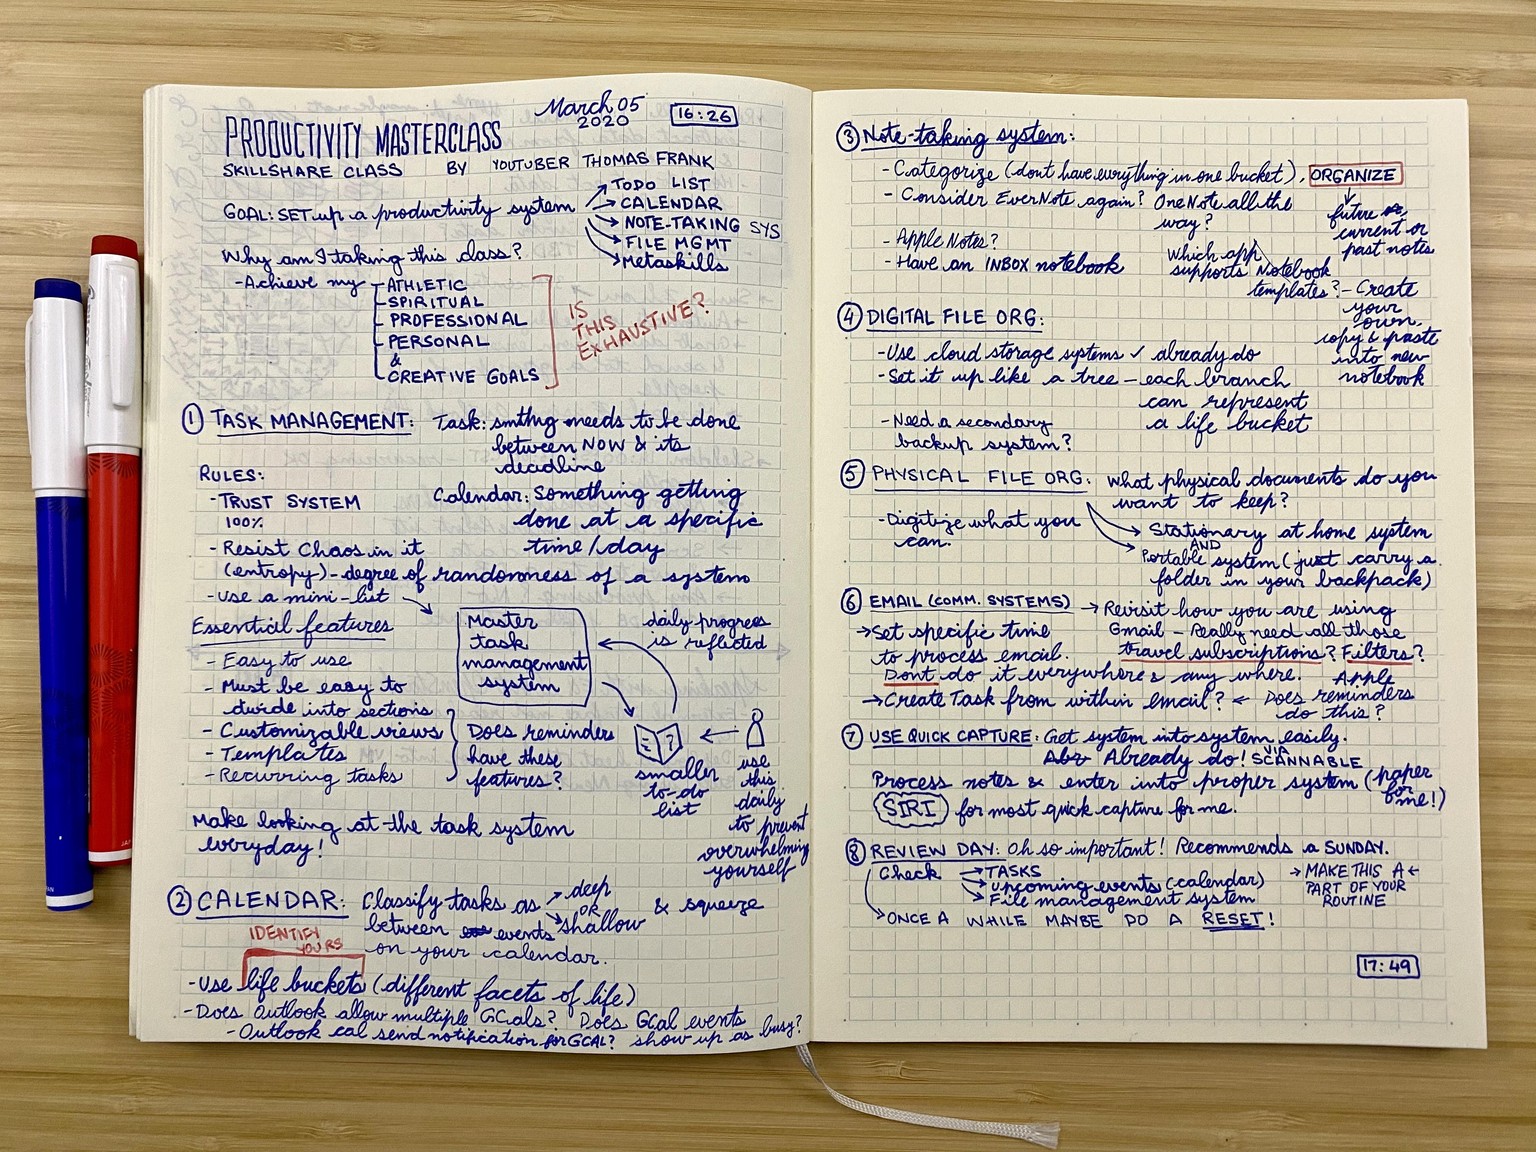 March 05
2020
16:26
PRODUCTIVITY MASTERCLASS
SKILLSHARE CLASS BY YOUTUBER THOMAS FRANK
GOAL: SET up a productivity system
TODO LIST
CALENDAR
NOTE-TAKING SYS
FILE MGMT
Metaskills
Why am I taking this class?
- Achieve my
ATHLETIC
SPIRITUAL
PROFESSIONAL
PERSONAL
&
CREATIVE GOALS
IS
THIS
EXHAUSTIVE?
① TASK MANAGEMENT:
Task: smthg needs to be done
between NOW & its
deadline
RULES:
- TRUST SYSTEM
100%
Calendar: Something getting
done at a specific
time/day
- Resist Chaos in it
(entropy) - degree of randomness of a system
- use a mini-list
Essential features
- Easy to use
- Must be easy to
divide into sections
- Customizable views
- Templates
- Recurring tasks
Does reminders
have these
features?
Master
task
management
system
daily progress
is reflected
smaller
to-do
list
use
this
daily
to prevent
overwhelming
yourself
Make looking at the task system
everyday!
② CALENDAR:
Classify tasks as
deep
OR
shallow
& squeeze
between events
on your calendar.
IDENTIFY
YOURS
- Use life buckets (different facets of life)
- Does Outlook allow multiple GCals? Does GCal events
show up as busy?
- Outlook cal send notification for GCAL?
③ Note-taking system:
- Categorize (dont have everything in one bucket), ORGANIZE
future
current or
past notes
- Consider EverNote again? OneNote all the
way?
- Apple Notes?
- Have an INBOX notebook
Which app
supports Notebook
templates? - Create
your
own,
copy & paste
into new
notebook
④ DIGITAL FILE ORG:
- Use cloud storage systems ✓ already do
- Set it up like a tree - each branch
can represent
a life bucket
- Need a secondary
backup system?
⑤ PHYSICAL FILE ORG:
What physical documents do you
want to keep?
- Digitize what you
can.
Stationary at home system
AND
Portable system (just carry a
folder in your backpack)
⑥ EMAIL (COMM. SYSTEMS)
→ Revisit how you are using
Gmail - Really need all those
travel subscriptions? Filters?
→ Set specific time
to process email.
Dont do it everywhere & any where.
→ Create Task from within email? ←
Apple
Does reminders
do this?
⑦ USE QUICK CAPTURE: Get system into system easily.
Already do! VIA
SCANNABLE
Process notes & enter into proper system (paper
for
me!)
SIRI for most quick capture for me.
⑧ REVIEW DAY: Oh so important! Recommends a SUNDAY.
Check
→ TASKS
→ Upcoming events (calendar)
→ File management system
→ MAKE THIS A ←
PART OF YOUR
ROUTINE
ONCE A WHILE MAYBE DO A RESET!
17:49